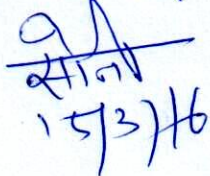 सोनी
15/3/16